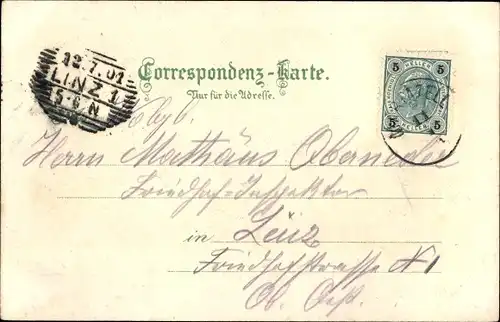 12.7.01
LINZ 1
5-6 N
Correspondenz-Karte.
Nur für die Adresse.
5 HELLER 5
5 HELLER 5
Herrn Mathäus
Friedhof-Inspektor
in Linz
Friedhofstrasse № 1
Ob. Oest.